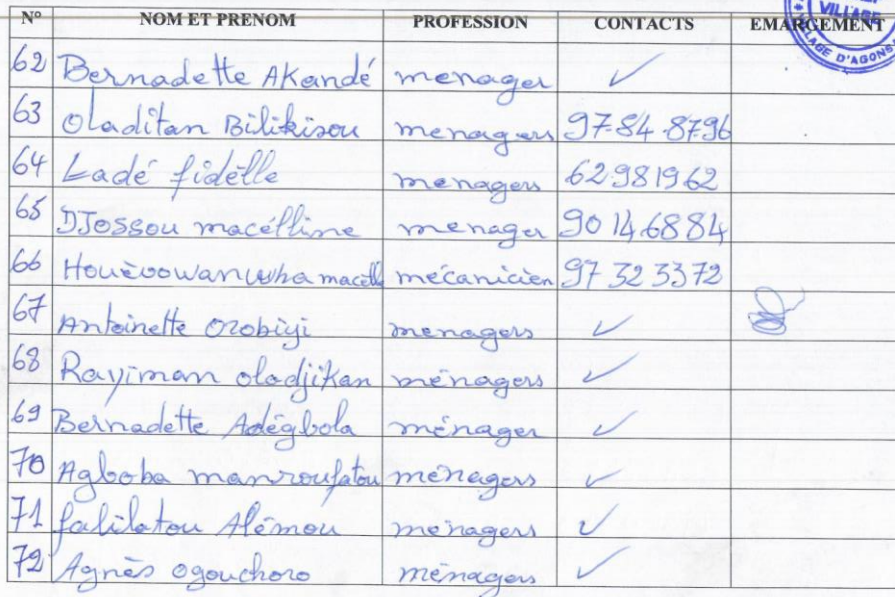 N° NOM ET PRENOM PROFESSION CONTACTS EMARGEMENT
VILLAGE
VILLAGE D'AGONS
62 Bernadette Akandé menager ✓
63 Oladitan Bilikisou menagers 97-84-8796
64 Ladé fidèlle menagers 62981962
65 DJossou macélline menager 90146884
66 macelle mécanicien 97323372
67 Antoinette Orobiyi menagers ✓
68 Rayiman oladjikan ménagers ✓
69 Bernadette Adégbola ménager ✓
70 Agboba manroufatou menagers ✓
71 falilatou Alémou menagers ✓
72 Agnès ogouchoro ménagers ✓